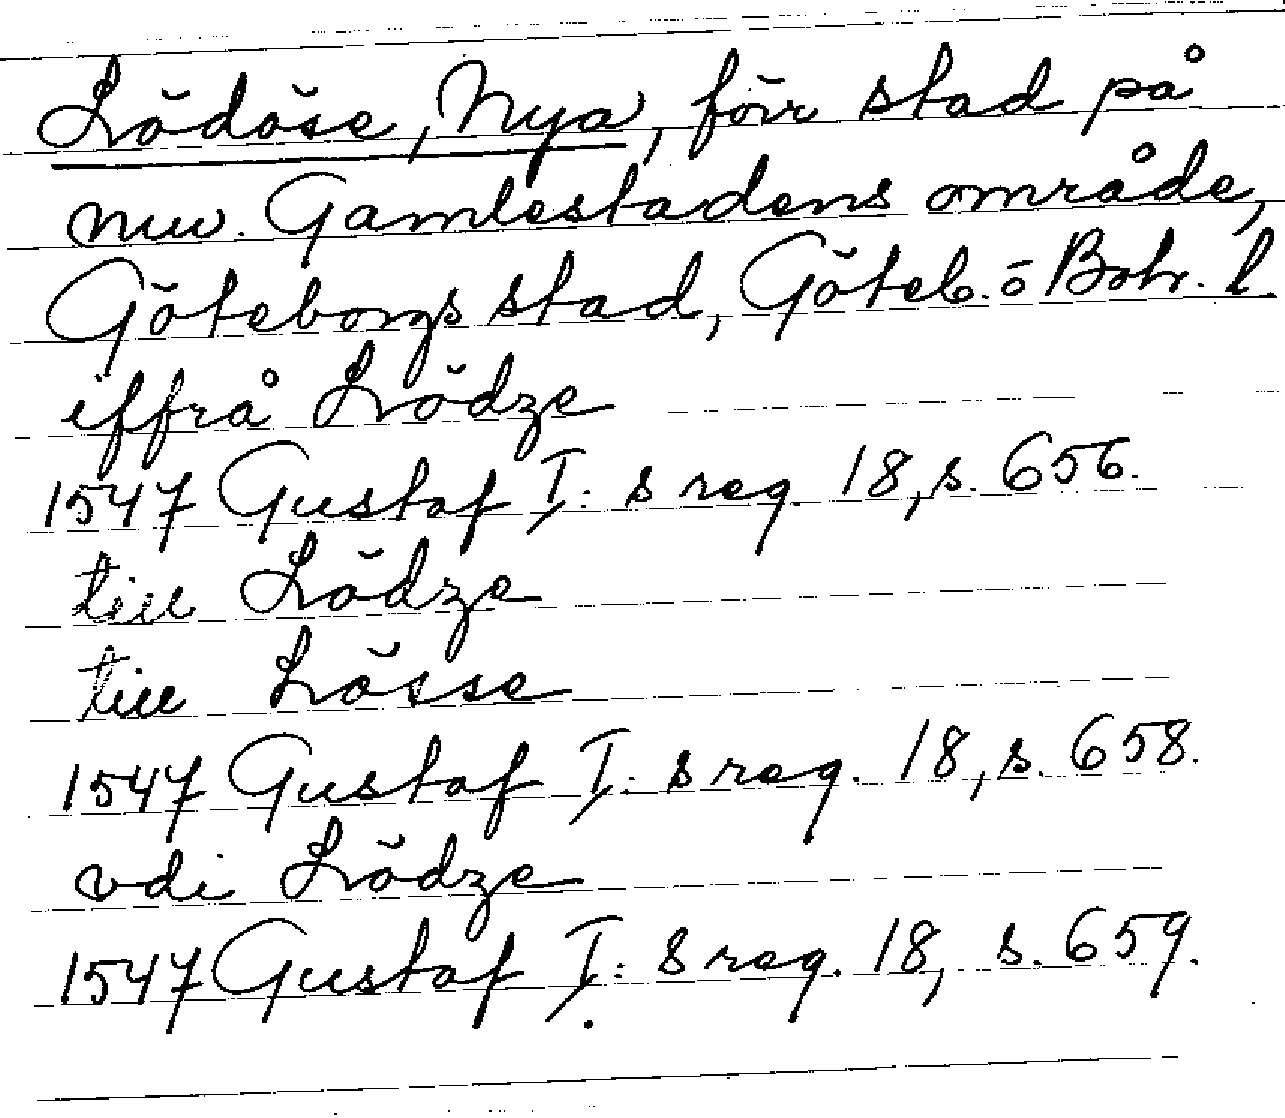 Lödöse, Nya, förr stad på
nuv. Gamlestadens område,
Göteborgs stad, Göteb. o Boh. l.
iffrå Lödze
1547 Gustaf I:s reg. 18, s. 656.
till Lödze
till Lösse
1547 Gustaf I:s reg. 18, s. 658.
vdi Lödze
1547 Gustaf I:s reg. 18, s. 659.